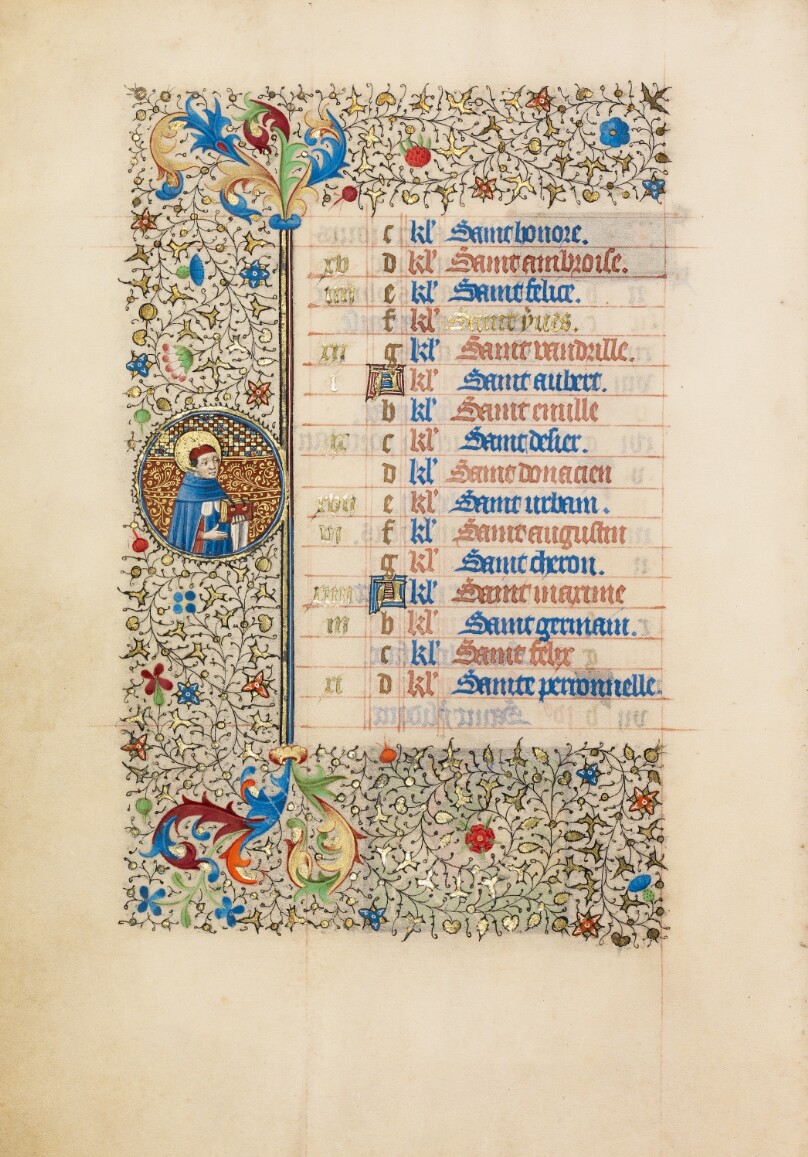 c kl' Saint honore.
xv d kl' Saint ambroise.
iiii e kl' Saint felice.
f kl' Saint yues.
xii g kl' Saint vandrille.
i A kl' Saint aubert.
b kl' Saint emille
ix c kl' Saint desier.
d kl' Saint donacien
xvii e kl' Saint urbain.
vi f kl' Saint augustin
g kl' Saint cheron.
xiiii A kl' Saint maxime
iii b kl' Saint germain.
c kl' Saint felix
xi d kl' Sainte perronnelle.